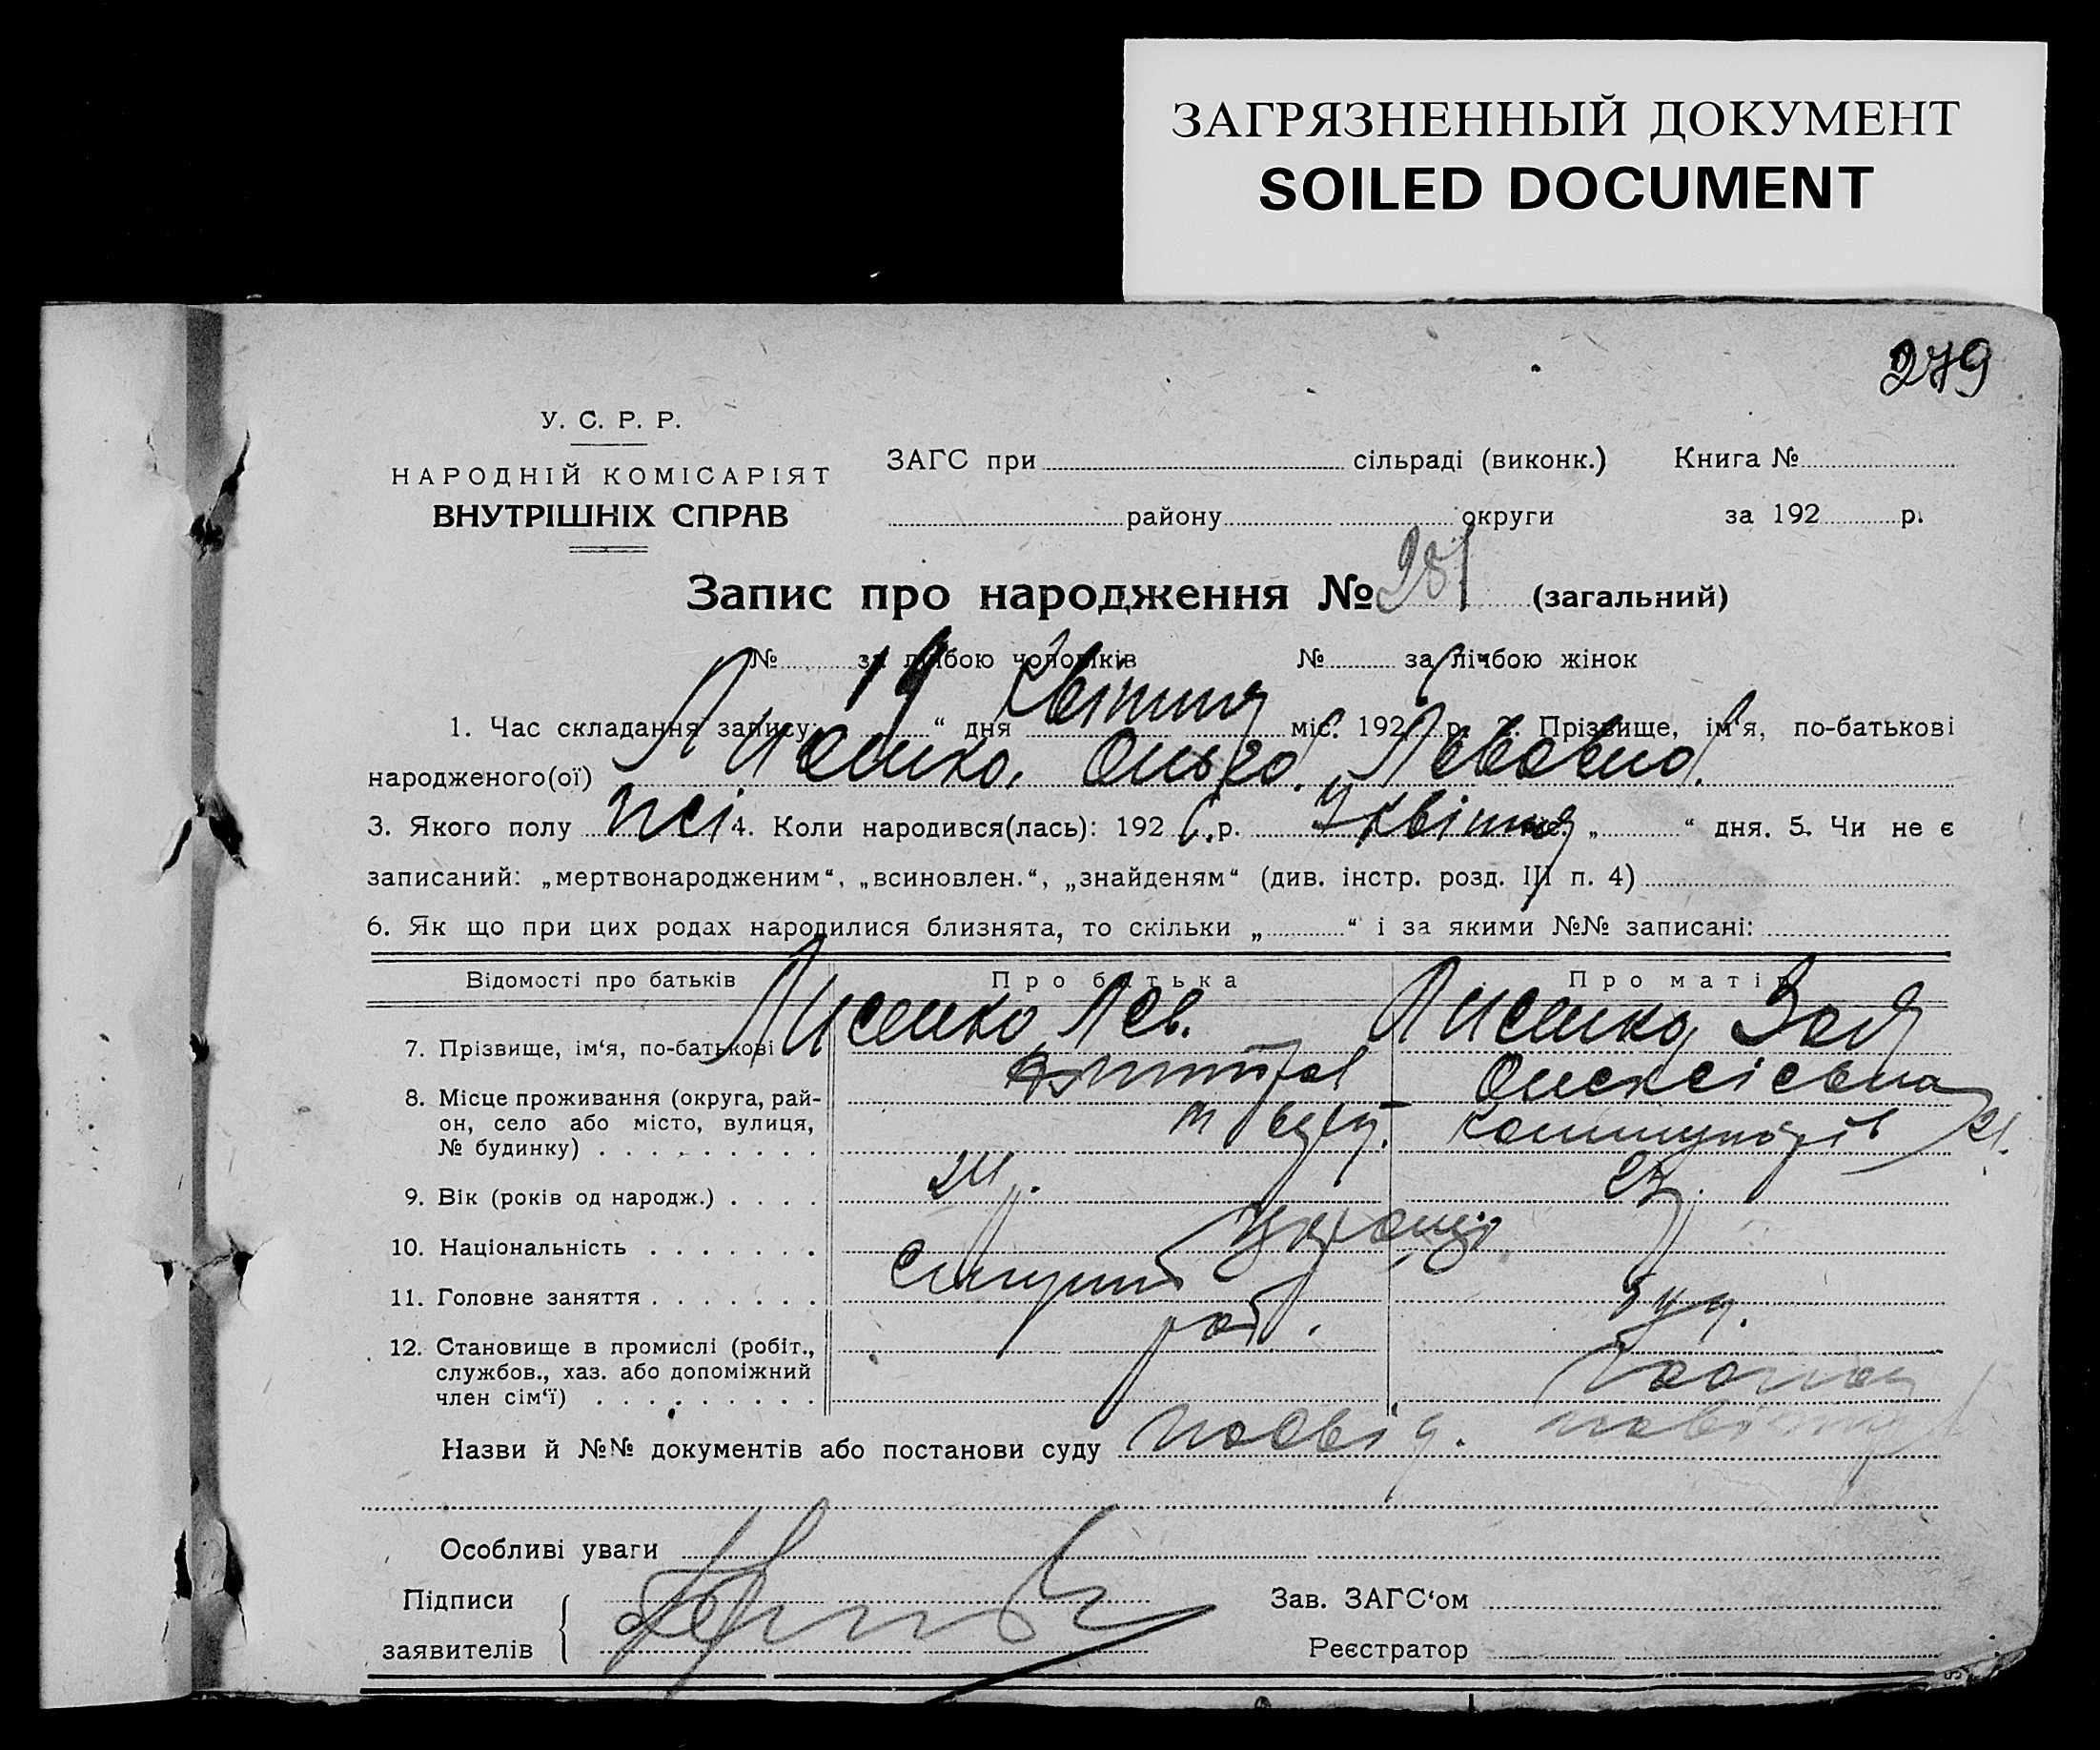 ЗАГРЯЗНЕННЫЙ ДОКУМЕНТ
SOILED DOCUMENT
279
У. С. Р. Р.
НАРОДНІЙ КОМІСАРІЯТ
ВНУТРІШНІХ СПРАВ
ЗАГС при сільраді (виконк.) Книга №
району округи за 192 р.
Запис про народження № 281 (загальний)
№ за лічбою чоловіків № за лічбою жінок
1. Час складання запису: 19 “ дня квітня міс. 192 р. 2. Прізвище, ім‘я, по-батькові
народженого(ої) Лисенко Ольга Львовна
3. Якого полу жі 4. Коли народився(лась): 192 р. квітня міс. „ “ дня. 5. Чи не є
записаний: „мертвонародженим“, „всиновлен.“, „знайденям“ (див. інстр. розд. III п. 4)
6. Як що при цих родах народилися близнята, то скільки „ “ і за якими №№ записані:
Відомості про батьків Про батька Про матір
7. Прізвище, ім‘я, по-батькові Лисенко Лев. Лисенко Зоя
Олексієвна
8. Місце проживання (округа, рай-
он, село або місто, вулиця,
№ будинку)
9. Вік (років од народж.) 24 р. 23
10. Національність Україн
11. Головне заняття
12. Становище в промислі (робіт.,
службов., хаз. або допоміжний
член сім‘ї)
Назви й №№ документів або постанови суду посвід.
Особливі уваги
Підписи
заявителів
Зав. ЗАГС‘ом
Реєстратор